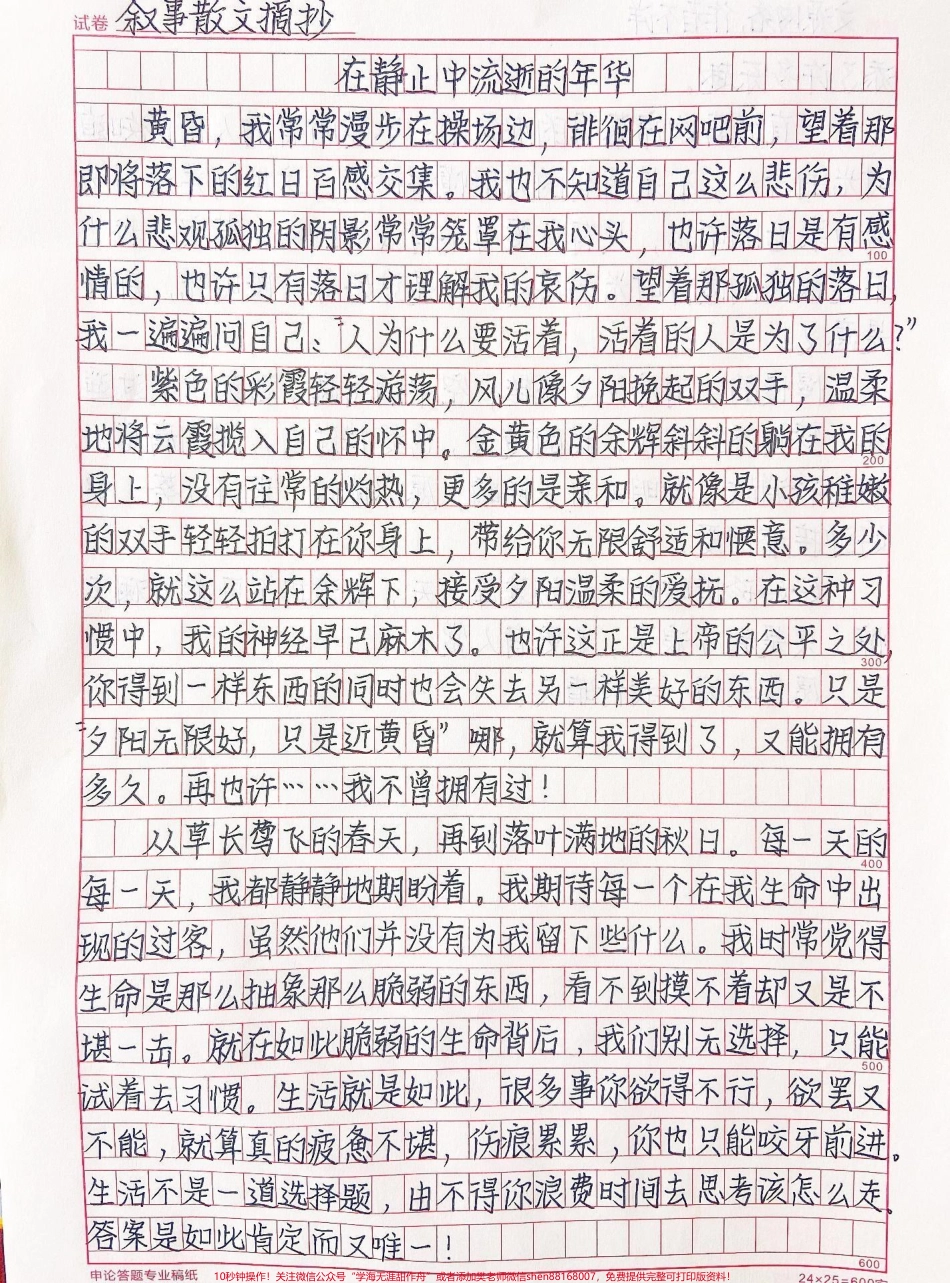 试卷 叙事散文摘抄
在静止中流逝的年华
黄昏，我常常漫步在操场边，徘徊在网吧前，望着那
即将落下的红日百感交集。我也不知道自己这么悲伤，为
什么悲观孤独的阴影常常笼罩在我心头，也许落日是有感
100
情的，也许只有落日才理解我的哀伤。望着那孤独的落日，
我一遍遍问自己：“人为什么要活着，活着的人是为了什么？”
紫色的彩霞轻轻游荡，风儿像夕阳挽起的双手，温柔
地将云霞揽入自己的怀中。金黄色的余辉斜斜的躺在我的
200
身上，没有往常的灼热，更多的是亲和。就像是小孩稚嫩
的双手轻轻拍打在你身上，带给你无限舒适和惬意。多少
次，就这么站在余辉下，接受夕阳温柔的爱抚。在这种习
惯中，我的神经早已麻木了。也许这正是上帝的公平之处，
300
你得到一样东西的同时也会失去另一样美好的东西。只是
“夕阳无限好，只是近黄昏”哪，就算我得到了，又能拥有
多久。再也许……我不曾拥有过！
从草长莺飞的春天，再到落叶满地的秋日。每一天的
400
每一天，我都静静地期盼着。我期待每一个在我生命中出
现的过客，虽然他们并没有为我留下些什么。我时常觉得
生命是那么抽象那么脆弱的东西，看不到摸不着却又是不
堪一击。就在如此脆弱的生命背后，我们别无选择，只能
500
试着去习惯。生活就是如此，很多事你欲得不行，欲罢又
不能，就算真的疲惫不堪，伤痕累累，你也只能咬牙前进。
生活不是一道选择题，由不得你浪费时间去思考该怎么走。
答案是如此肯定而又唯一！
600
申论答题专业稿纸 10秒钟操作！关注微信公众号“学海无涯甜作舟”或者添加美老师微信shen88168007，免费提供完整可打印版资料！ 24×25=600字